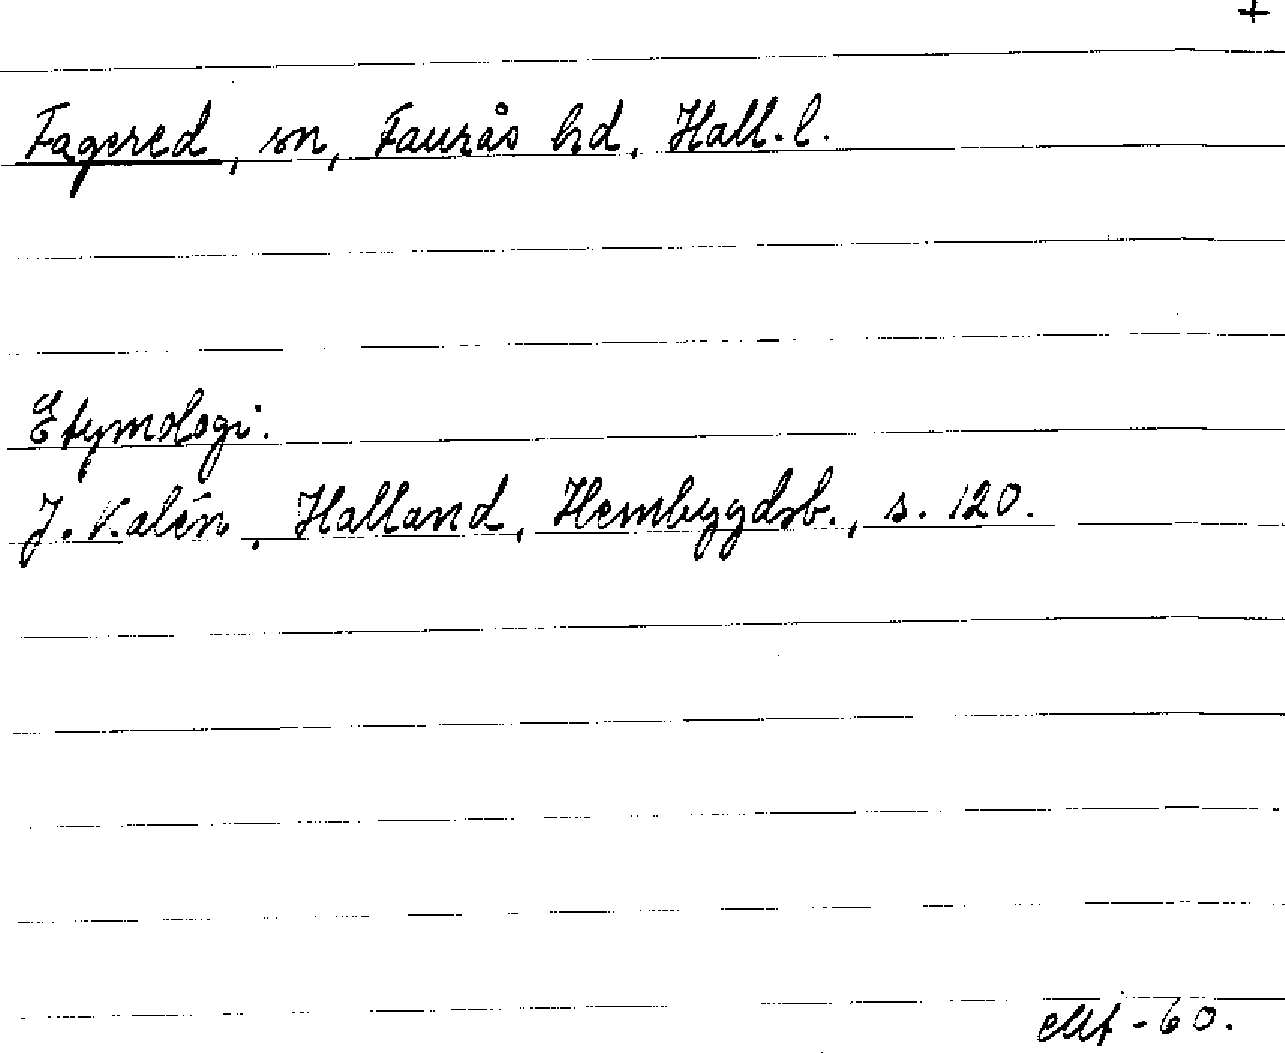 +
Fagered, sn, Faurås hd, Hall. l.
Etymologi.
J. Kalén, Halland, Hembygdsb., s. 120.
-60.